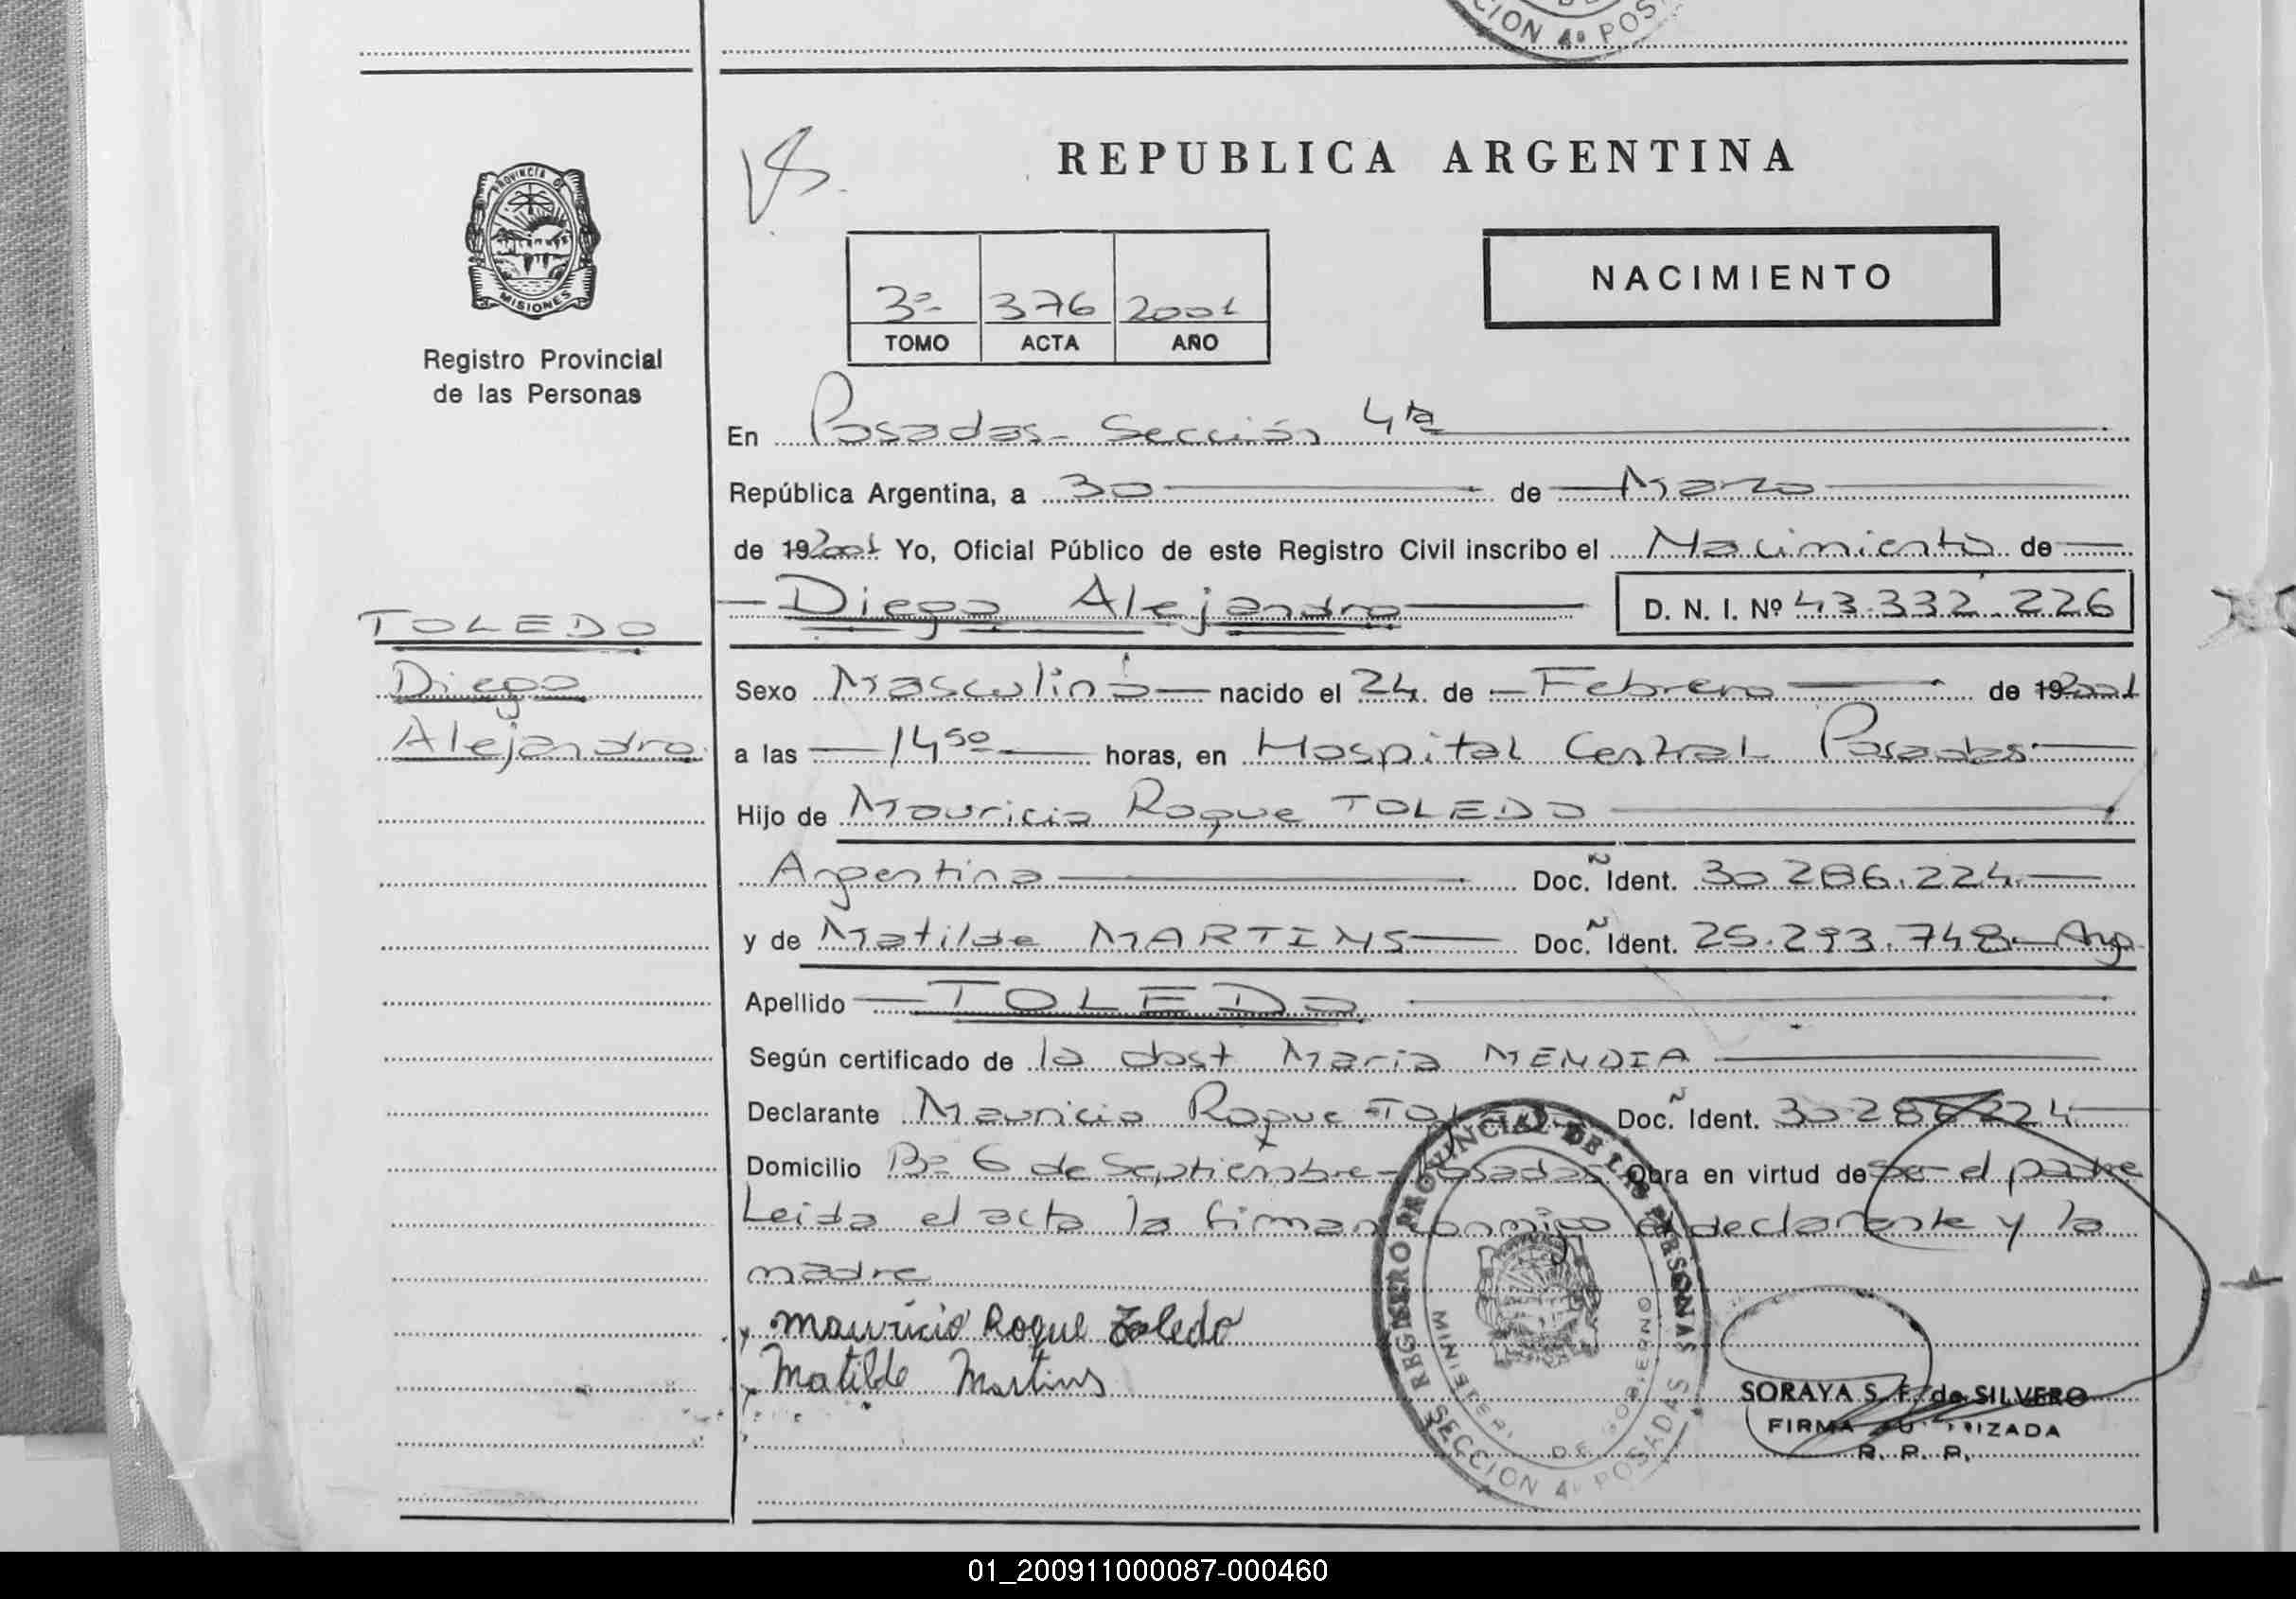 CION 4ª POS
PROVINCIA DE
MISIONES
Registro Provincial
de las Personas
REPUBLICA ARGENTINA
NACIMIENTO
3º 376 2001
TOMO ACTA AÑO
En Posadas - Sección 4ta
República Argentina, a 30 de Marzo
de 19 2001 Yo, Oficial Público de este Registro Civil inscribo el Nacimiento de
Diego Alejandro D. N. I. Nº 43.332.226
TOLEDO
Diego
Alejandro
Sexo Masculino nacido el 24 de Febrero de 19 2001
a las 14 50 horas, en Hospital Central Posadas
Hijo de Mauricio Roque TOLEDO
Argentina Doc. Ident. 30.286.224
y de Matilde MARTINS Doc. Ident. 25.293.748 - Arg
Apellido TOLEDO
Según certificado de la obst Maria MENDIA
Declarante Mauricio Roque TOLEDO Doc. Ident. 30.286.224
Domicilio Bº 6 de Septiembre - Posadas Obra en virtud de ser el padre
Leida el acta la firman conmigo el declarante y la
madre
Mauricio Roque Toledo
Matilde Martins
REGISTRO PROVINCIAL DE LAS PERSONAS
DE GOBIERNO
SECCION 4ª POSADAS
SORAYA S. F. de SILVERO
FIRMA AUTORIZADA
R. P. P.
01_200911000087-000460